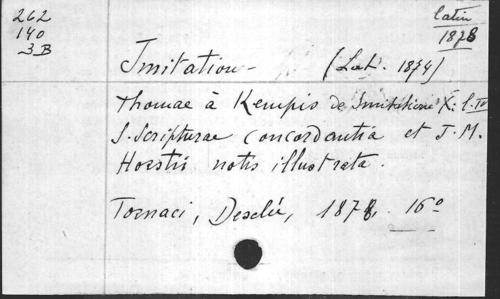 262
140
3B
latin
1878
Imitation - (Lat. 1874)
Thomae à Kempis de Imitatione X: l. IV
S. Scripturae concordantia et J. M.
Horstii notis illustrata.
Tornaci, Desclée, 1878. 16º